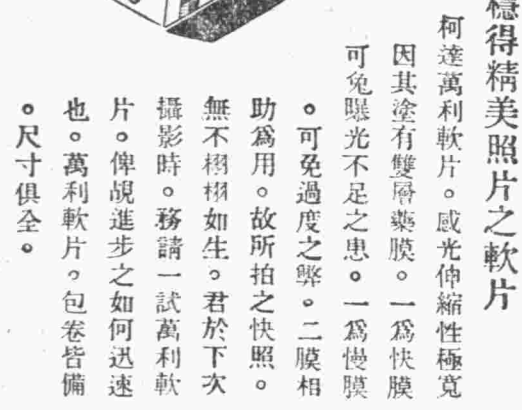 穩得精美照片之軟片
柯達萬利軟片。感光伸縮性極寬
因其塗有雙層藥膜。一爲快膜
可免曝光不足之患。一爲慢膜
。可免過度之弊。二膜相
助爲用。故所拍之快照。
無不栩栩如生。君於下次
攝影時。務請一試萬利軟
片。俾覘進步之如何迅速
也。萬利軟片。包卷皆備
。尺寸俱全。